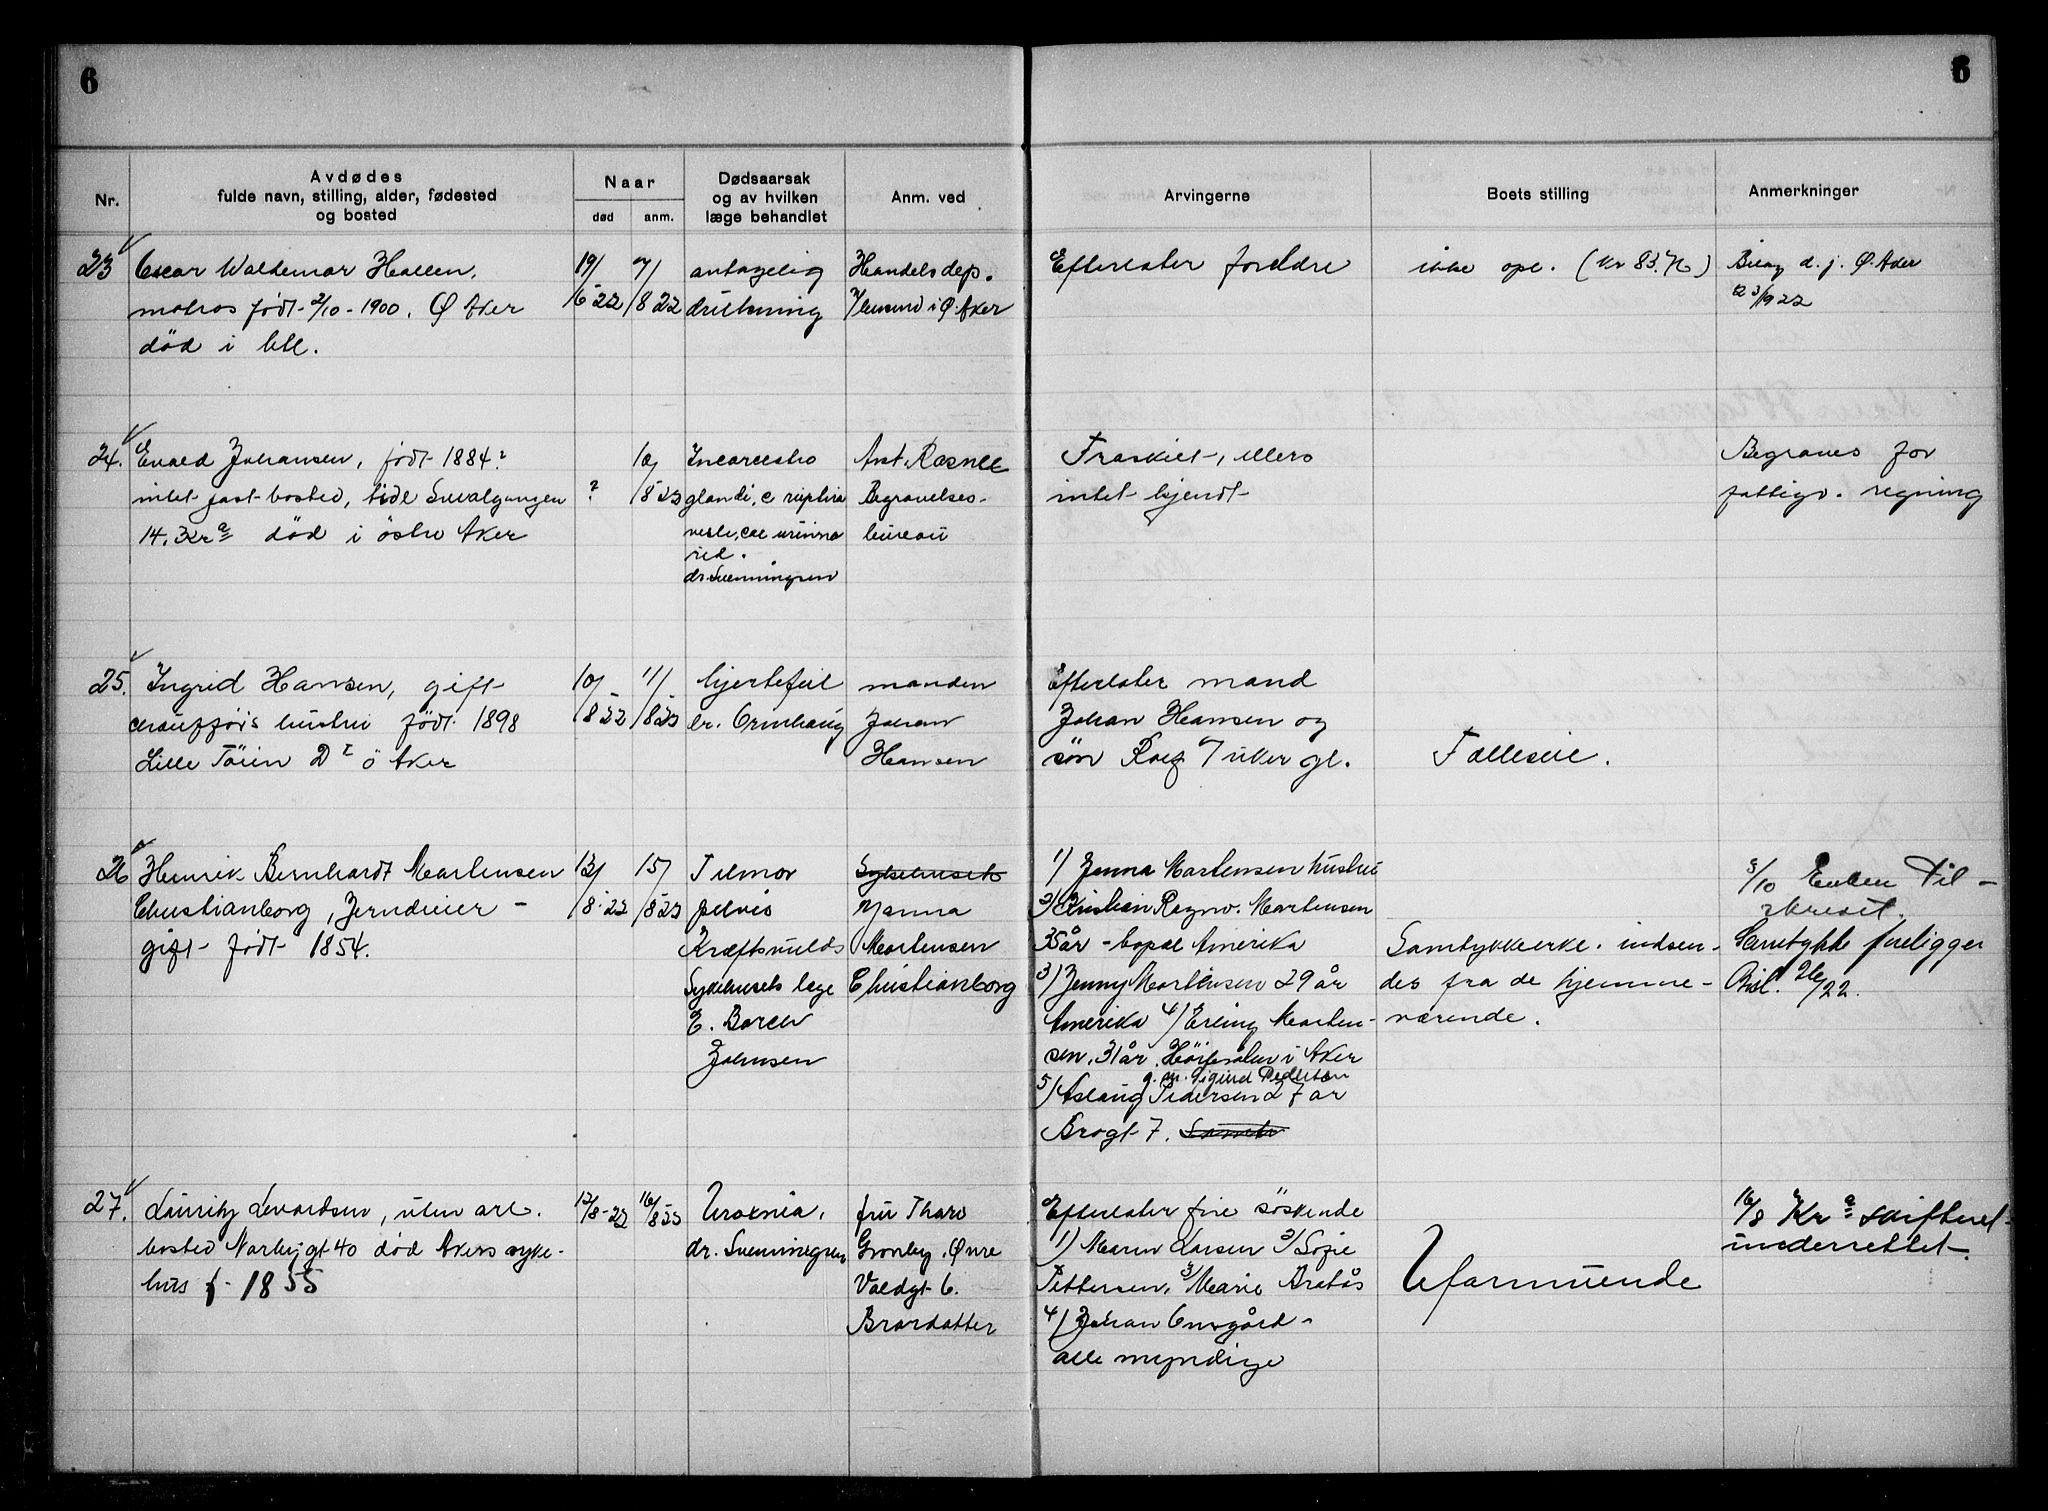 6
6
Nr.
Avdødes
fulde navn, stilling, alder, fødested
og bosted
Naar
død
anm.
Dødsaarsak
og av hvilken
læge behandlet
Anm. ved
Arvingerne
Boets stilling
Anmerkninger
23
Oscar Waldemar Hallen.
matros født 2/10-1900. Ø Aker
død i
19/
6-22
7/
8 22
antagelig
drukning
Handelsdep.
i Ø. Aker
Efterlater foreldre
ikke opl. (kr 83.
Bilag d. j. Ø. Aker
1922
24.
Evald Johansen, født 1884?
intet fast bosted, tidl
14. Kra død i østre Aker
?
10/
8 22
ruptura
dr. Svenningsen
Begravelses-
bureau
Fraskilt, ellers
intet kjendt
Begraves for
fattigv. regning
25.
Ingrid Hansen, gift
chaufførs hustru født 1898
Lille Tøien Ø Aker
10/
8 22
11/
8 22
hjertefeil
dr. Ormhaug
manden
Johan
Hansen
Efterlater mand
Johan Hansen og
søn Rolf 7 uker gl.
Fælleseie.
26
Henrik Bernhardt Martensen
Christianborg, Jerndreier -
gift født 1854.
13/
8-22
15/
8 22
Tumor
pelvis
Kræftsvulst
Sykehusets læge
E. Borch
Johnsen
Sykehuset
Janna
Martensen
Christianborg
1) Janna Martensen hustru
2) Kristian Ragnv. Martensen
35 år - bopæl Amerika
3) Jenny Martensen 29 år
Amerika 4) Erling Marten-
sen, 31 år, i Aker
g. m. Sigurd Pedersen
5) Aslaug Pedersen 27 år
Brogt 7.
Samtykkeerkl. indsen-
des fra de hjemme-
værende.
3/10 Enken til-
skrevet.
Samtykke foreligger
Bil. 26/22.
27.
Lauritz Levardsen, uten arb.
bosted Narbygt 40 død Akers syke-
hus f. 1855
12/8-22
16/8 22
Uræmia,
dr. Svenningsen
fru Thara
Grønby, Øvre
Valdgt 6.
Brordatter
Efterlater fire søskende
1) Maren Larsen 2) Sofie
Pettersen, 3) Marie Bratås
4) Johan
alle myndige
Uformuende
16/8 Kra skifteret
underrettet.